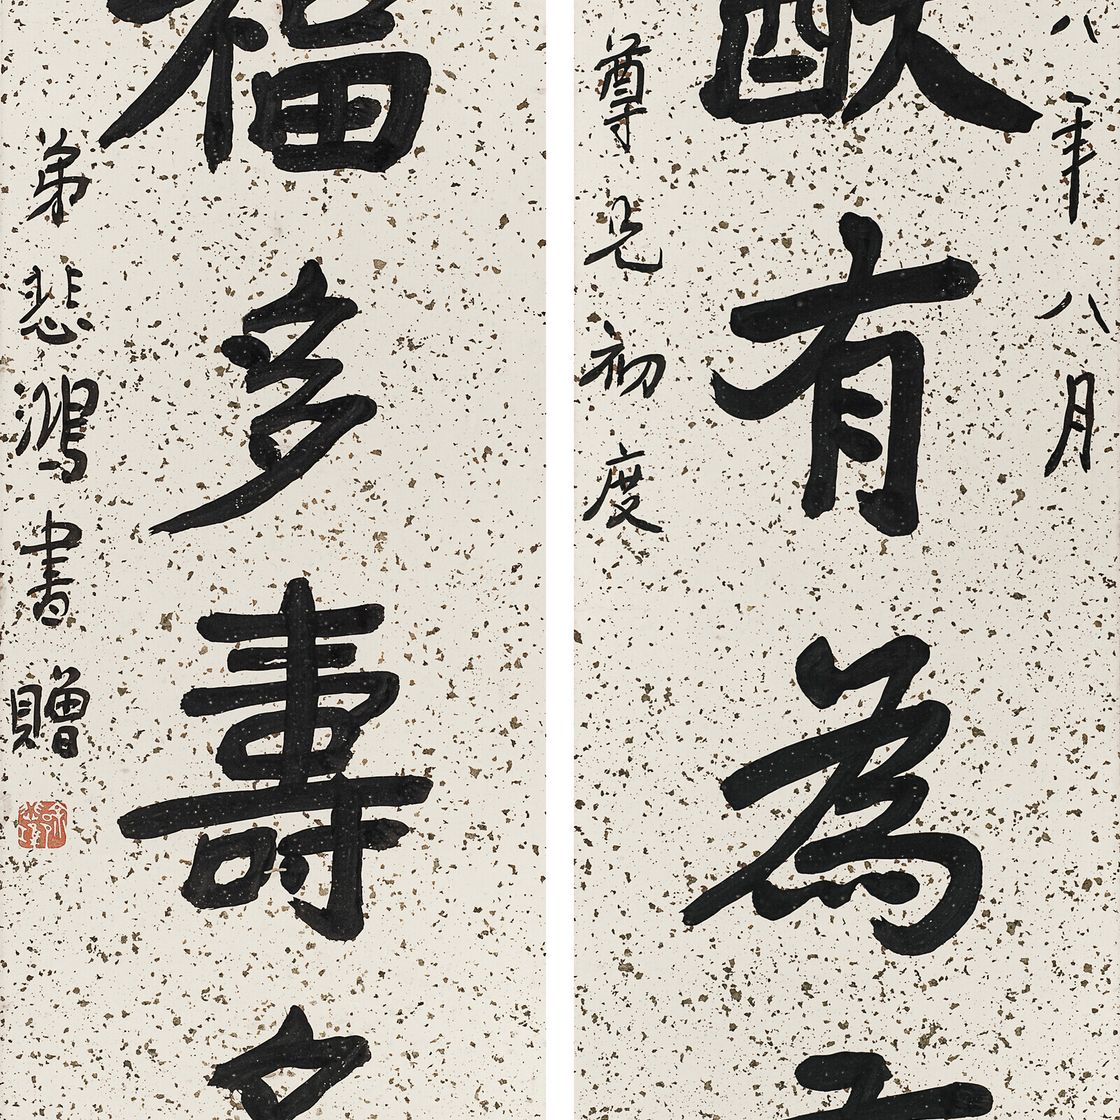 八年八月
猷有為
尊兄初度
福多壽多
弟悲鴻書贈